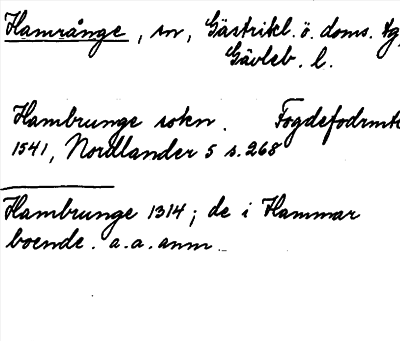 Hamrånge, sn, Gästrikl. ö. doms. tg,
Gävleb. l.
Hambrunge sokn. Fogdefodrmte
1541, Nordlander 5 s. 268
Hambrunge 1314; de i Hammar
boende. a.a. anm.